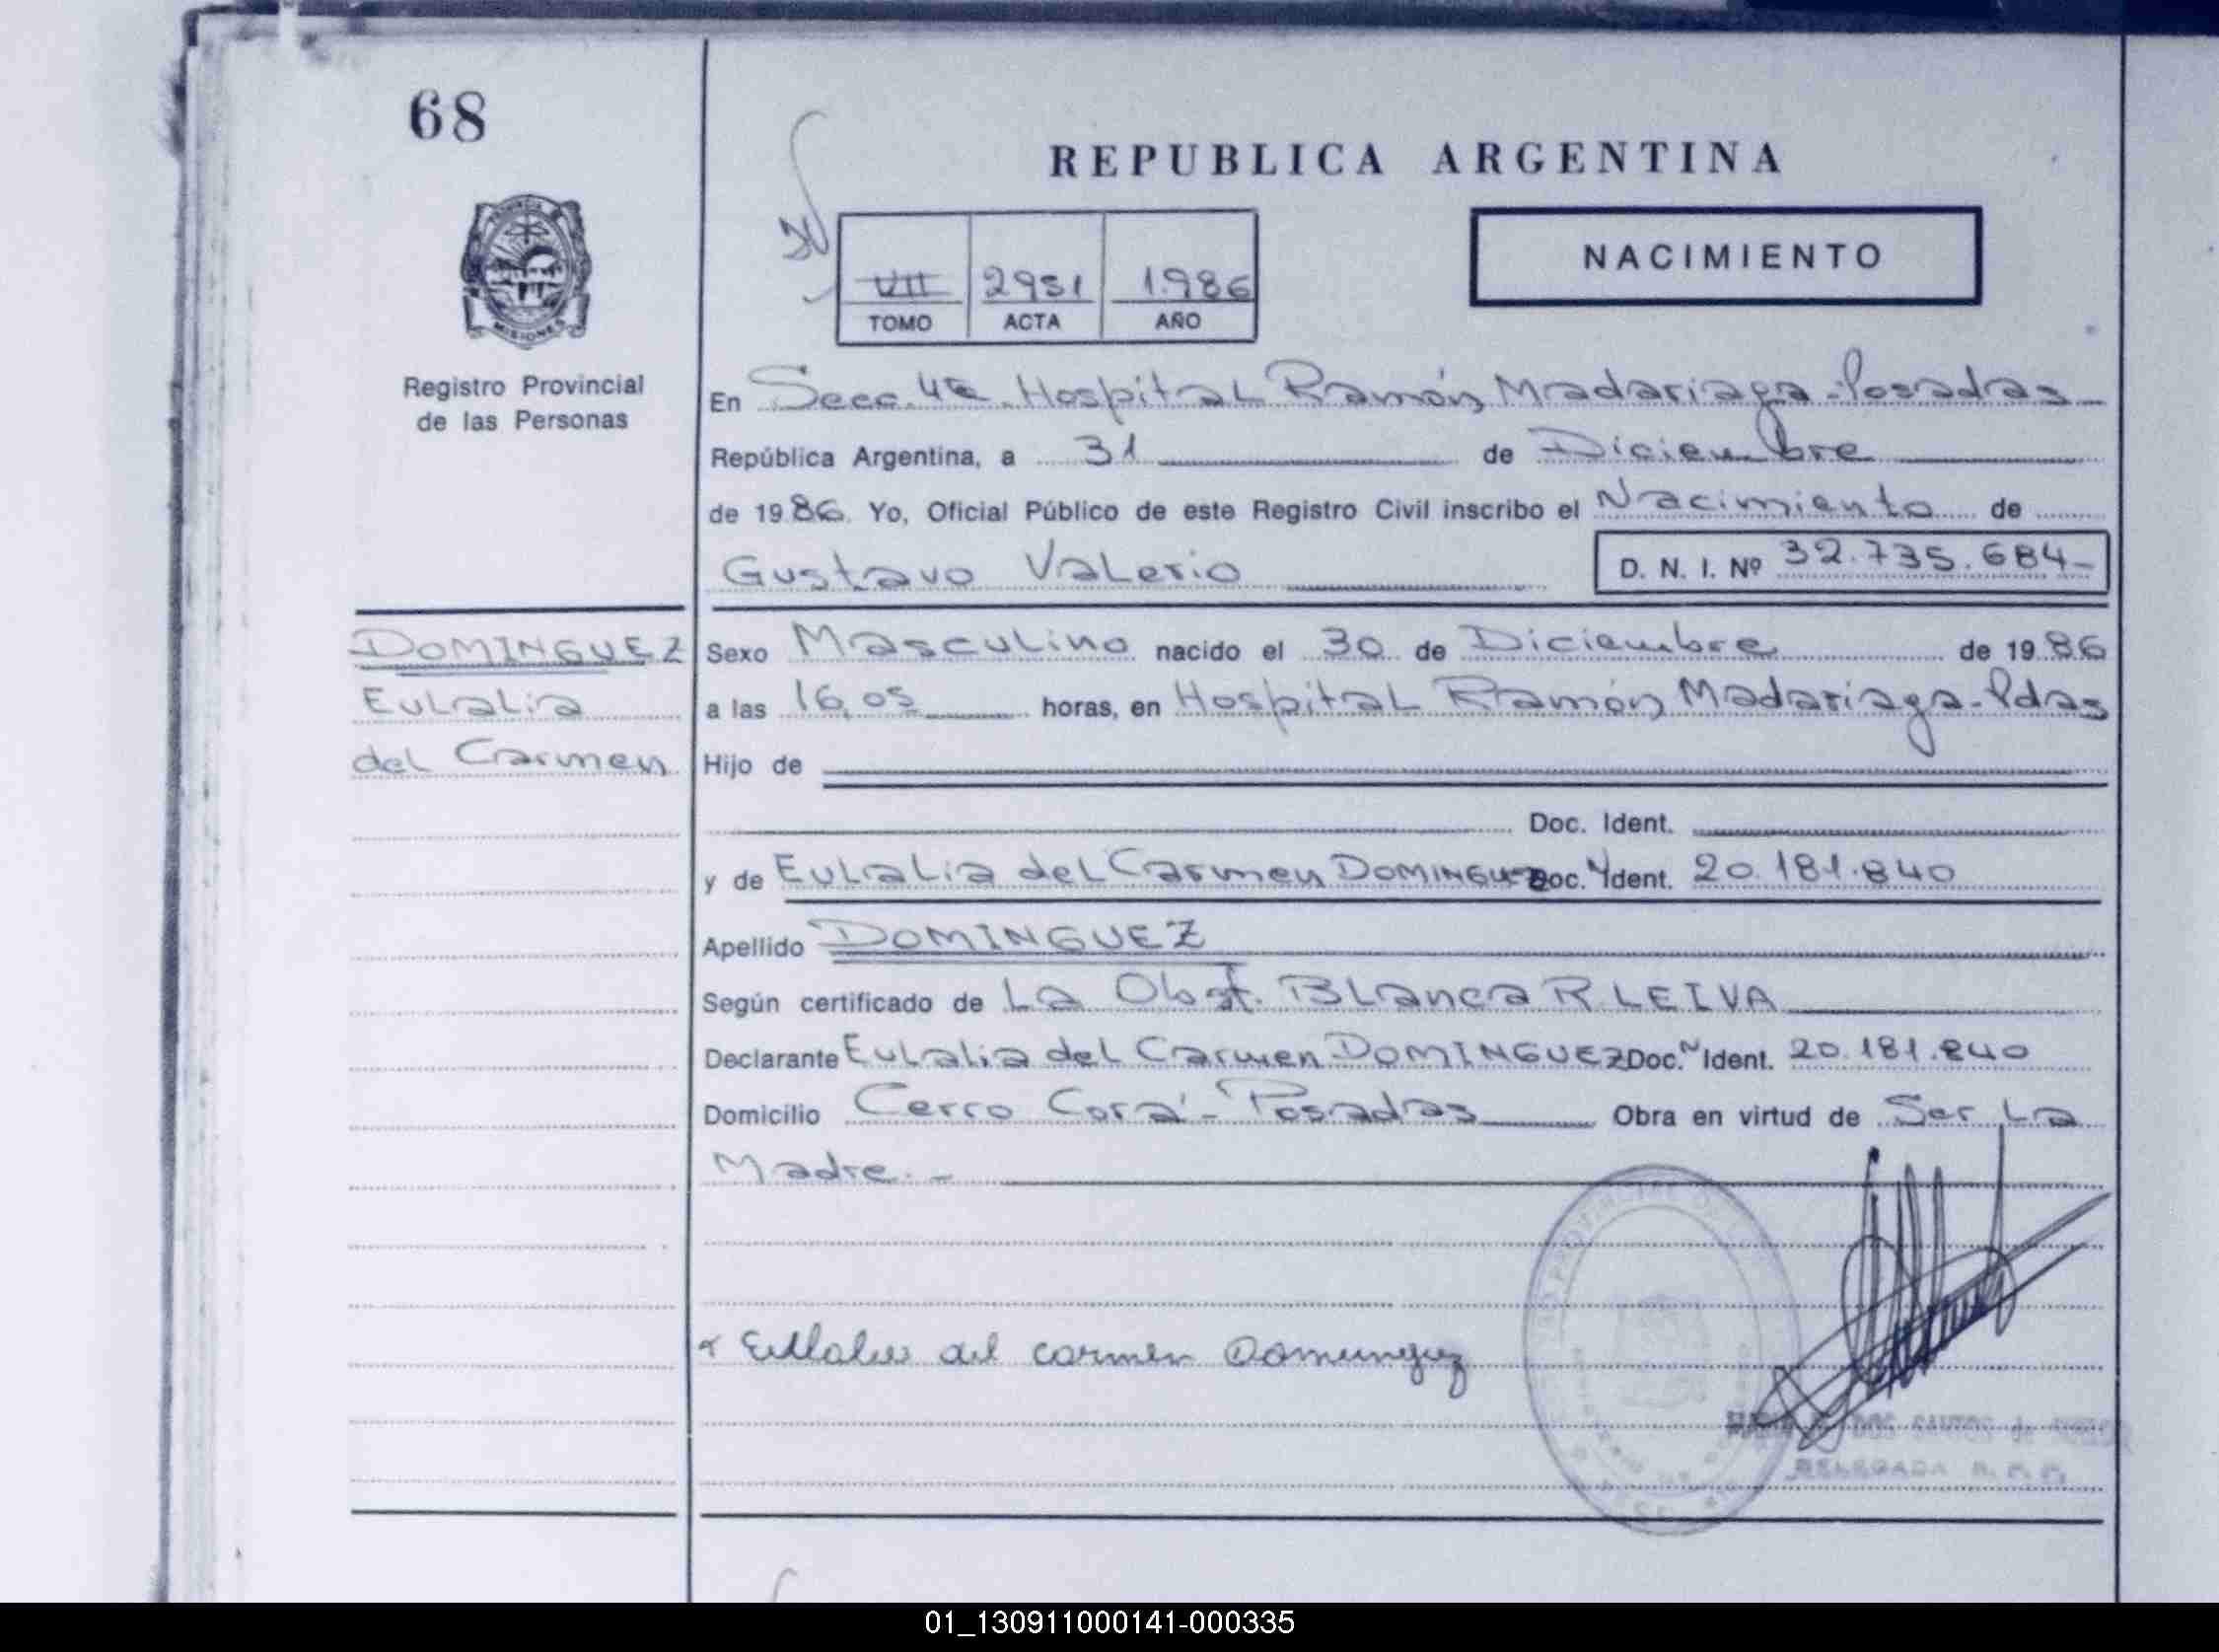 68
REPUBLICA ARGENTINA
NACIMIENTO
VII 2951 1.986
TOMO ACTA AÑO
MISIONES
Registro Provincial
de las Personas
En Secc. 4ta. Hospital Ramón Madariaga - Posadas
República Argentina, a 31 de Diciembre
de 1986. Yo, Oficial Público de este Registro Civil inscribo el Nacimiento de
Gustavo Valerio D. N. I. Nº 32.735.684-
DOMINGUEZ
Eulalia
del Carmen
Sexo Masculino nacido el 30 de Diciembre de 1986
a las 16,05 horas, en Hospital Ramón Madariaga - Pdas
Hijo de
Doc. Ident.
y de Eulalia del Carmen DOMINGUEZ Doc. Ident. 20.181.840
Apellido DOMINGUEZ
Según certificado de La Obst. Blanca R. LEIVA
Declarante Eulalia del Carmen DOMINGUEZ Doc. Ident. 20.181.840
Domicilio Cerro Corá - Posadas Obra en virtud de Ser La
Madre. -
del carmen Dominguez
DOS SANTOS de
DELEGADA
01_130911000141-000335